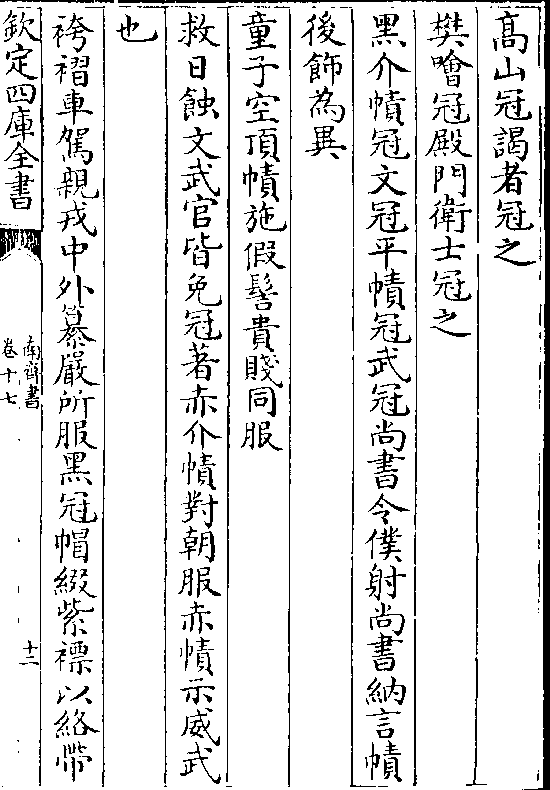 高山冠謁者冠之
樊噲冠殿門衛士冠之
黑介幘冠文冠平幘冠武冠尚書令僕射尚書納言幘
後飾為異
童子空頂幘施假髻貴賤同服
救日蝕文武官皆免冠著赤介幘對朝服赤幘示威武
也
袴褶車駕親戎中外纂嚴所服黑冠帽綴紫褾以絡帶
欽定四庫全書
南齊書
卷十七
十二